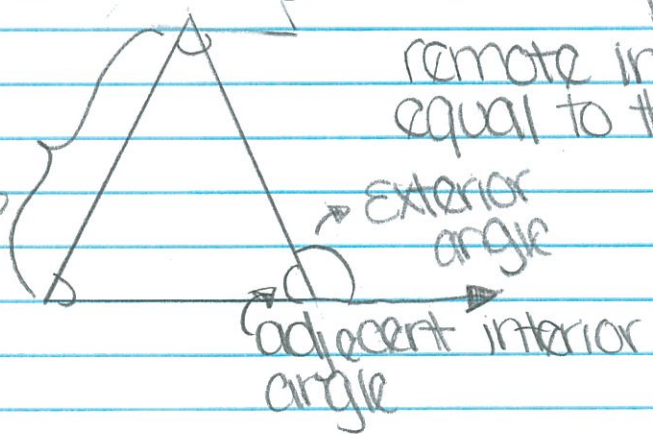 remote in
equal to th
Exterior
angle
adjecent interior
angle